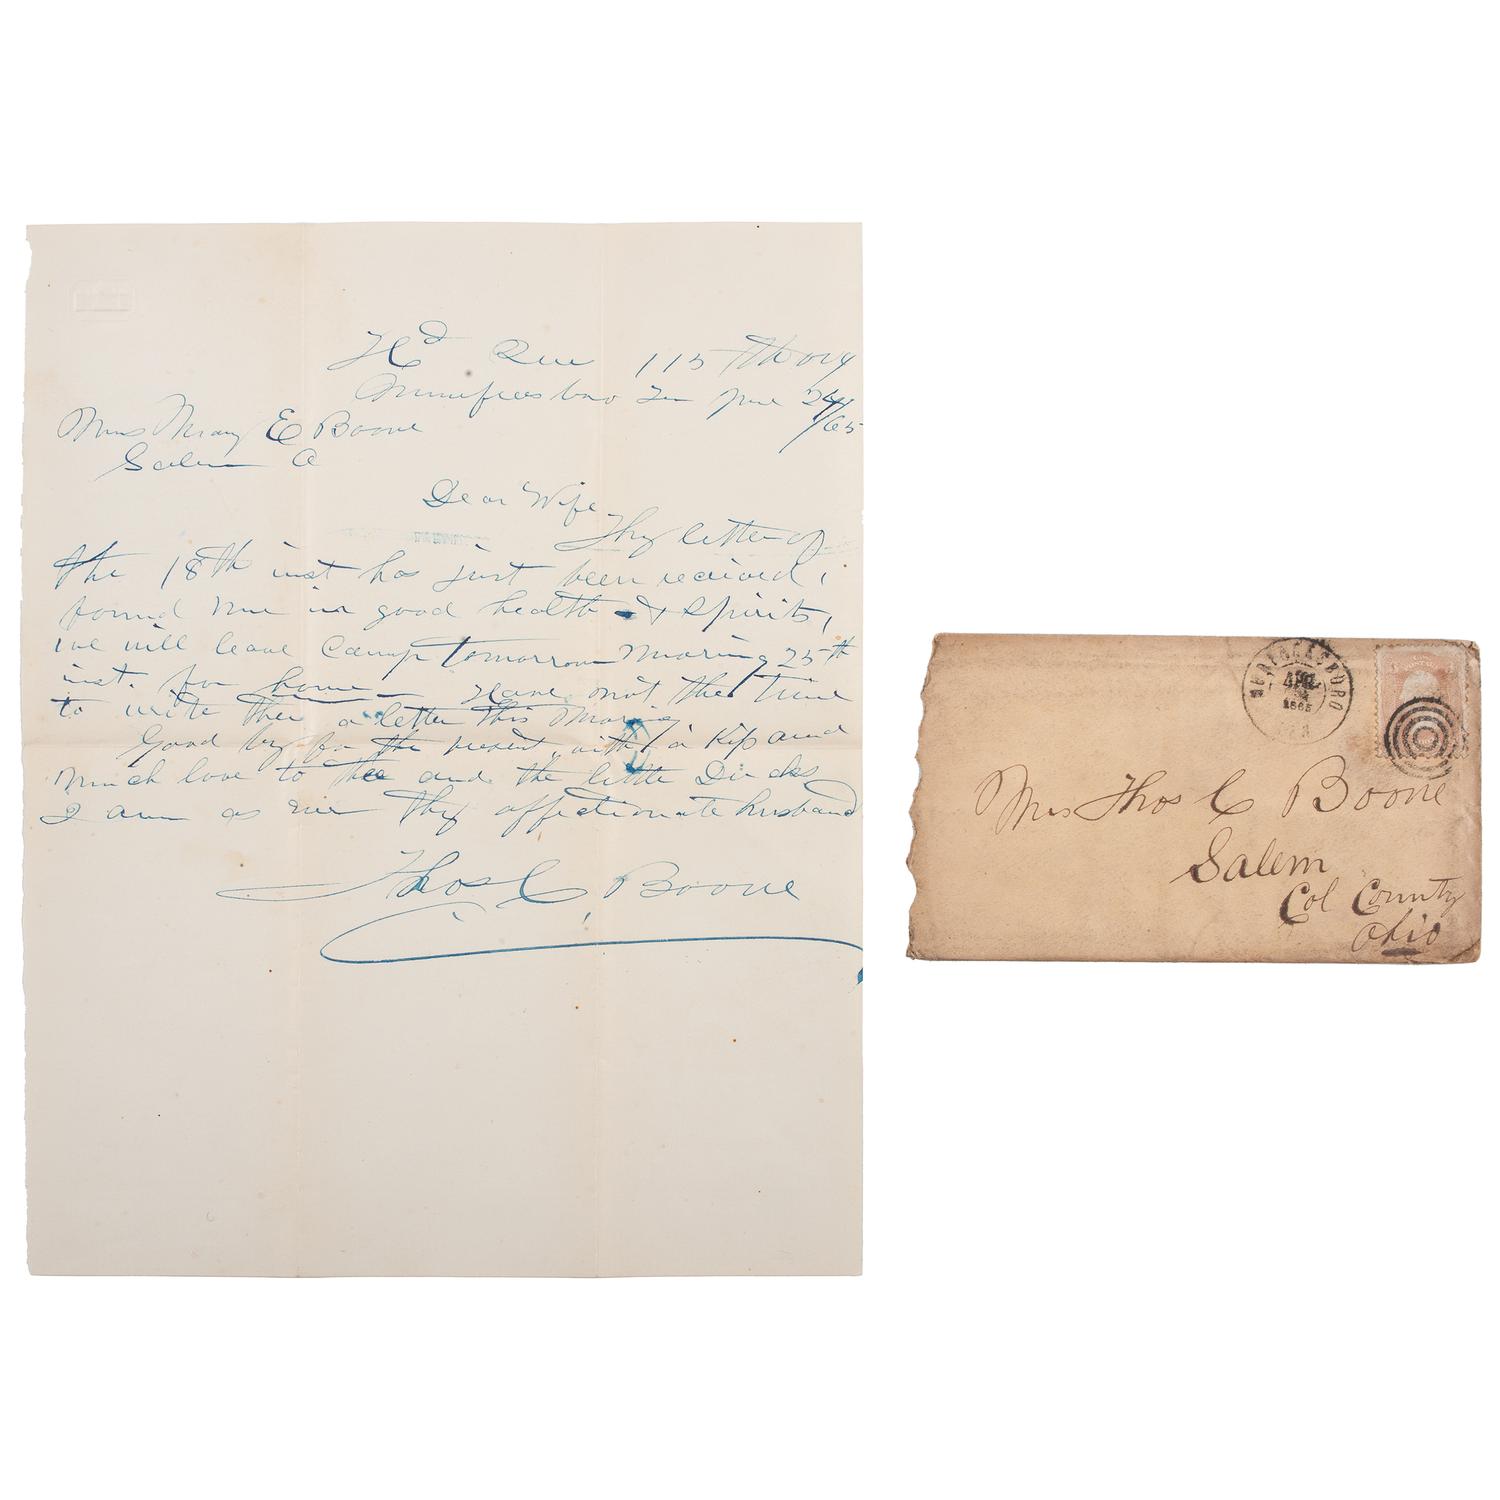 Hd Qrs 115th OVI
Murfreesboro Ten June 24th
/65
Mrs Mary E Boone
Salem O
Dear Wife
Thy letter of
the 18th inst has just been received,
found me in good health & spirits,
we will leave Camp tomorrow morning 25th
inst. for home Have not the time
to write thee a letter this morning
Good by for the present, with a Kiss and
much love to thee and the little Ducks
I am as ever thy affectionate husband
Thos C Boone
MURFREESBORO
APR
1865
Mrs Thos C Boone
Salem
Col County
Ohio